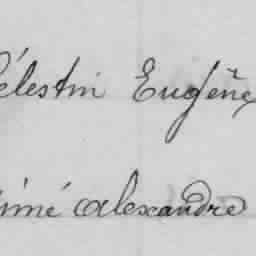 élestin Eugène
imé Alexandre